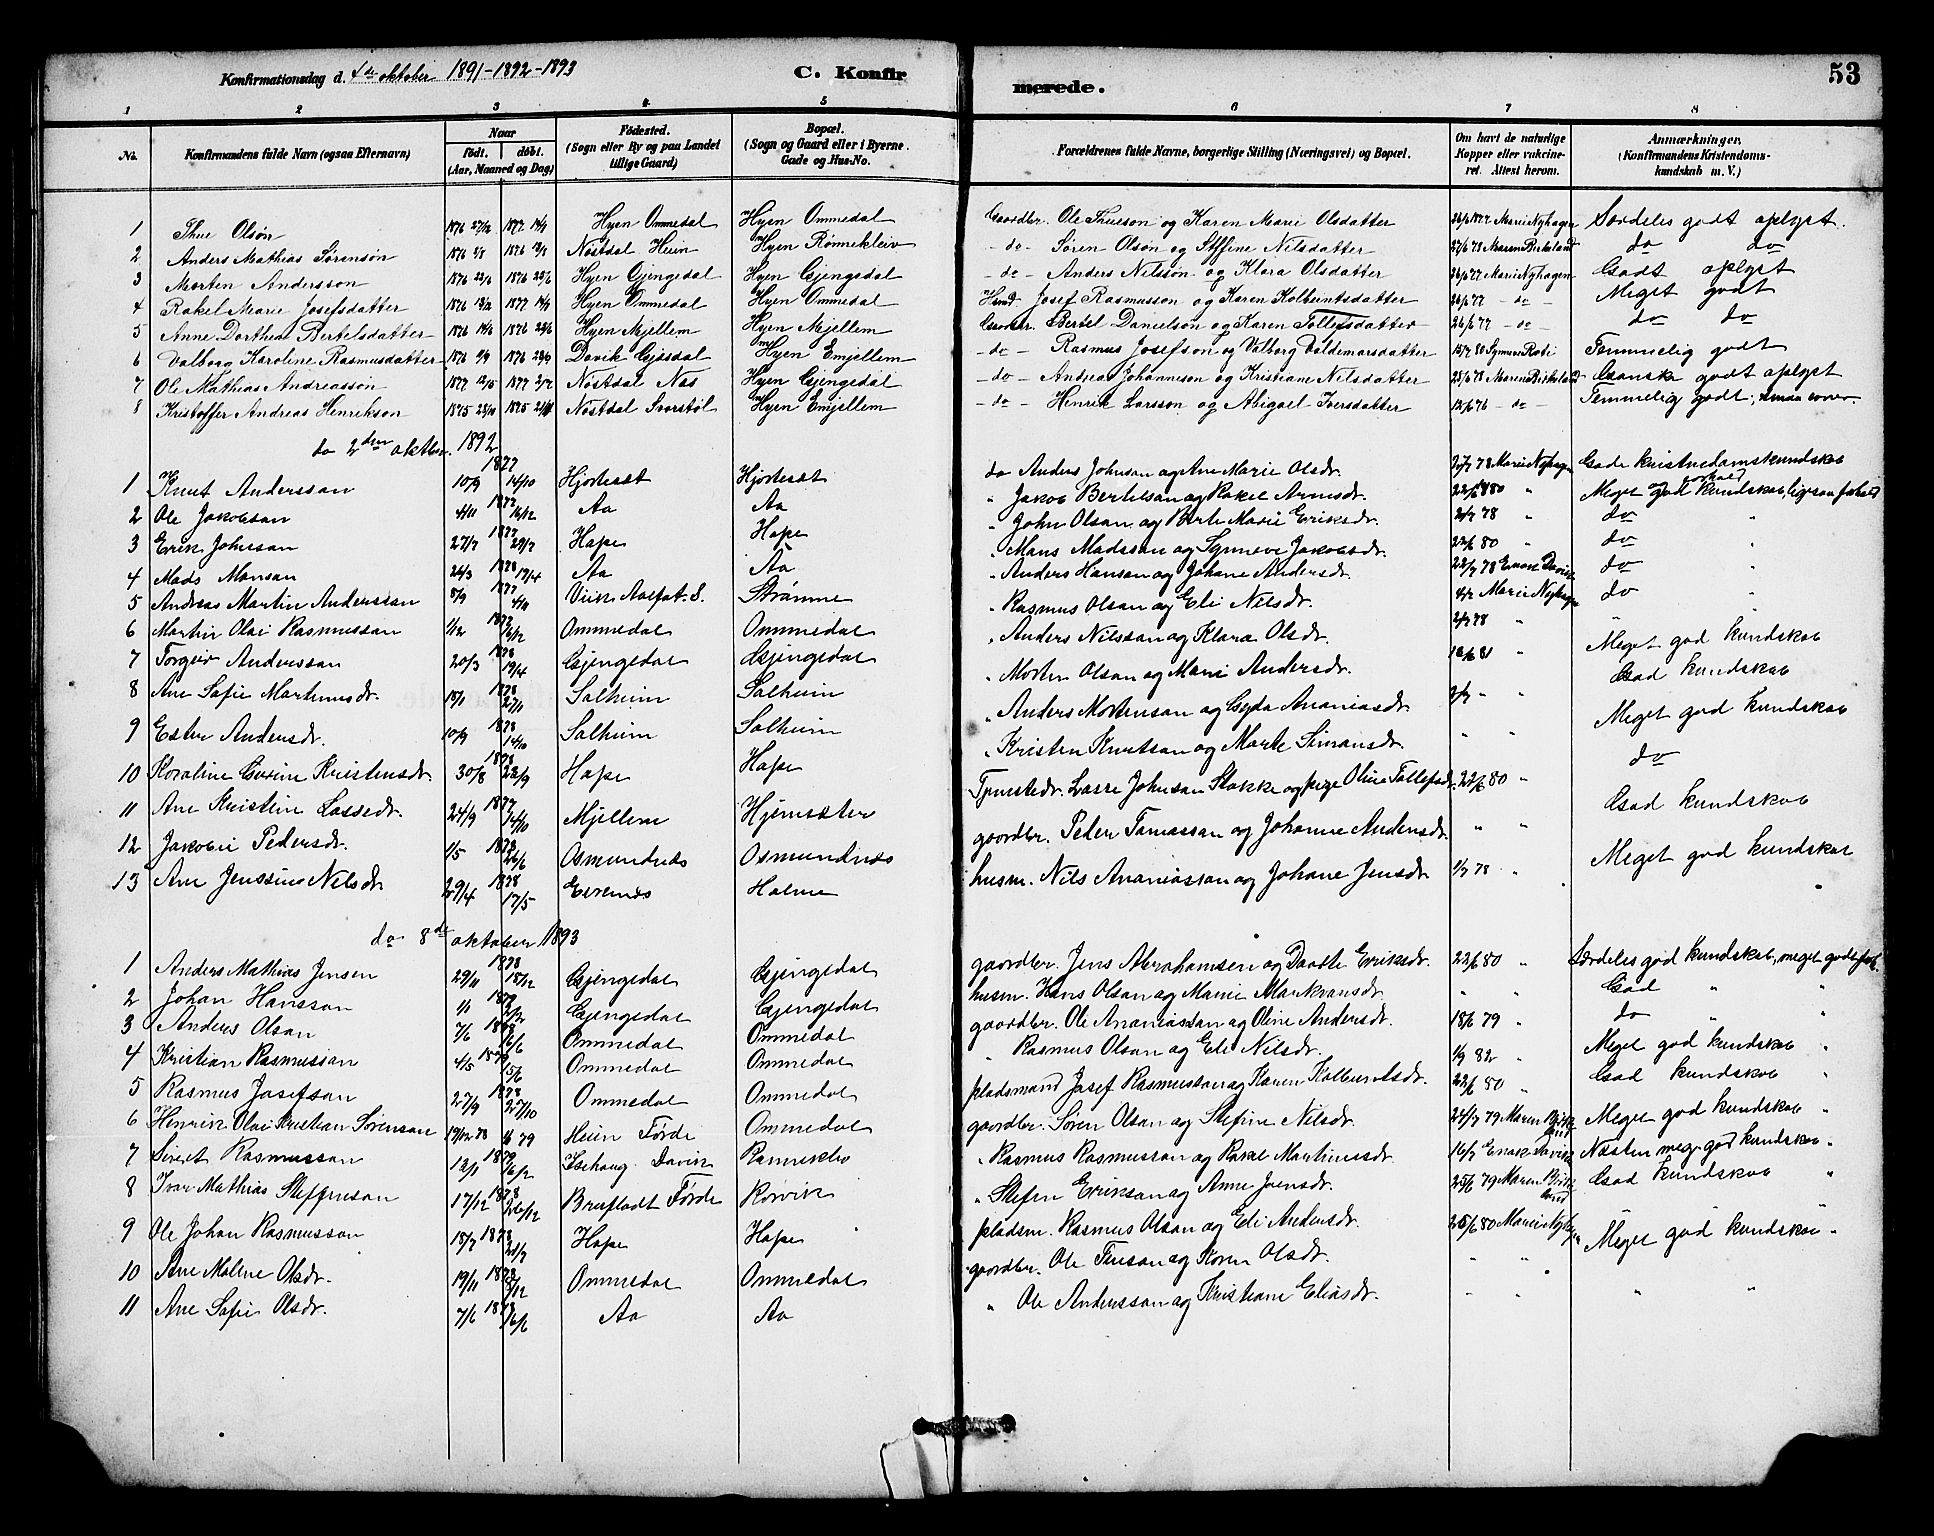 Konfirmationsdag d. 4de oktober 1891-1892-1893 C. Konfirmerede. 53
1 2 3 4 5 6 7 8
No. Konfirmandens fulde Navn (ogsaa Efternavn) Naar født. døbt. (Aar, Maaned og Dag) Fødested. (Sogn eller By og paa Landet tillige Gaard) Bopæl. (Sogn og Gaard eller i Byerne. Gade og Hus-No. Forældrenes fulde Navne, borgerlige Stilling (Næringsvei) og Bopæl. Om havt de naturlige Kopper eller vakcineret. Attest herom. Anmærkninger, (Konfirmandens Kristendomskundskab m. V.)
1 Thue Olsøn 1876 27/12 1877 14/1 Hyen Ommedal Hyen Ommedal Gaardbr. Ole Thueson og Karen Marie Olsdatter 26/6 1877 Marie Nyhagen Særdeles godt oplyst.
2 Anders Mathias Sørensøn 1876 1876 Nøstdal Heien Hyen Rønnekleiv - do - Søren Olsøn og Steffine Nilsdatter 27/6 78 Maren Birkeland do do
3 Morten Andersson 1876 1876 Hyen Gjengedal Hyen Gjengedal - do - Anders Nilssøn og Klara Olsdatter 26/6 77 Marie Nyhagen Godt oplyst
4 Rakel Marie Josefsdatter 1876 1877 14/1 Hyen Ommedal Hyen Ommedal Husmd. Josef Rasmusson og Karen Kolbeintsdatter 26/6 77 - do - Meget godt
5 Anne Dorthea Bertelsdatter 1876 1876 Hyen Mjellem Hyen Mjellem Gaardbr. Bertel Danielsøn og Karen Tollefsdatter 26/6 77 - do - do do
6 Valborg Karoline Rasmusdatter 1876 1876 Davik Gjesdal Hyen Emjellem - do - Rasmus Josefson og Valborg Valdemarsdatter 15/7 80 Temmelig godt
7 Ole Mathias Andreassøn 1877 1877 Nøstdal Nes Hyen Gjengedal - do - Andreas Johanneson og Kristiane Nilsdatter 25/6 78 Maren Birkeland Ganske godt oplyst
8 Kristoffer Andreas Henrikson 1875 1875 Nøstdal Svorstøl Hyen Emjellem - do - Henrik Larsson og Abigael Iversdatter 12/6 76 - do - Temmelig godt,
do 2den oktbr. 1892
1 Knut Andersson 10/9 1877 14/10 Hjortesæt Hjortesæt do Anders Johnsan og Ane Marie Olsdr. 2/7 78 Marie Nyhagen Gode kristnedomskundskab
2 Ole Jakobsan 4/11 1877 16/12 Aa Aa " Jakob Bertelsan og Rakel Arnesdr. 22/6 80 " Meget god kundskab,
3 Erik Johnsan 27/7 1877 29/7 Hope Hope " John Olsan og Berte Marie Eriksdr. 2/7 78 " do "
4 Mads Monsan 24/3 1878 19/4 Aa Aa " Mons Madssan og Synneve Jakobsdr. 22/6 80 do "
5 Andreas Martin Anderssan 8/9 1877 4/11 Viik Aalfot. S. Strømme " Anders Hansan og Johane Andersdr. 22/7 78 Enok Davik do "
6 Martin Olai Rasmussan 1/12 1877 16/12 Ommedal Ommedal " Rasmus Olsan og Eli Nilsdr. Marie Nyhagen do "
7 Torgeir Anderssan 20/3 1878 19/4 Gjengedal Gjengedal " Anders Nilssan og Klara Olsdr. 2/7 78 " Meget god kundskab
8 Ane Sofie Martinusdr. 18/11 1878 27/11 Solheim Solheim " Morten Olsan og Marie Andersdr. 16/6 81 " God kundskab
9 Ester Andersdr. 10/9 1878 14/10 Solheim Solheim " Anders Mortensan og Gyda Ananiasdr. 2/7 " " Meget god kundskab
10 Karoline Gurine Kristensdr. 30/8 1878 22/9 Hope Hope " Kristen Knutsan og Marte Simansdr. " " do
11 Ane Kristine Lassedr. 24/9 1877 14/10 Mjellem Hjemsæter Tjenstedr. Lasse Johnsan Stokke og pige Oline Tollefsdr. 22/6 80 " God kundskab
12 Jakobie Pedersdr. 1/5 1878 26/6 Osmundnes Osmundnes gaardbr. Peder Tomassan og Johanne Andersdr. " " Meget god kundskab
13 Ane Jenssine Nilsdr. 29/4 1878 17/5 Eikenes Holme husm. Nils Ananiassan og Johane Jensdr. 2/7 78 " "
do 8de oktober 1893
1 Anders Mathias Jensen 29/11 1878 18/12 Gjengedal Gjengedal gaardbr. Jens Abrahamsen og Daarte Eriksdr. 22/6 80 " Særdeles god kundskab, meget god
2 Johan Hansson 1/1 1879 2/2 Gjengedal Gjengedal husm. Hans Olsan og Marie Markvansdr. " " God " "
3 Anders Olsan 7/6 1878 16/6 Ommedal Ommedal gaardbr. Ole Ananiassan og Oline Andersdr. 18/6 79 " do " "
4 Kristian Rasmussan 4/5 1879 15/6 Ommedal Ommedal " Rasmus Olsan og Eli Nilsdr. 1/9 82 " Meget god kundskab "
5 Rasmus Josefsan 27/9 1878 27/10 Ommedal Ommedal pladsmand Josef Rasmussan og Karen Kolbeintsdr. 22/6 80 " God kundskab "
6 Henrik Olai Kristian Sørensan 19/12 78 79 Heien Førde Ommedal gaardbr. Søren Olsan og Stefine Nilsdr. 24/7 79 Maren Birkeland Meget god kundskab "
7 Sivert Rasmussan 12/1 1879 16/2 Isehaug Davik Rønneklev " Rasmus Rasmussan og Rakel Martinusdr. 16/7 Enok Davik Næsten meg. god kundskab "
8 Ivar Mathias Steffensan 17/12 1878 26/12 Brufladt Førde Rørvik " Stefen Eriksan og Anne Joensdr. 25/6 79 Maren Birkeland God kundskab "
9 Ole Johan Rasmussan 18/7 1878 21/7 Hope Hope pladsm. Rasmus Olsan og Eli Andersdr. 25/6 80 Marie Nyhagen Meget god kundskab "
10 Ane Malene Olsdr. 19/11 1878 Ommedal Ommedal gaardbr. Ole Tuesan og Karen Olsdr. " "
11 Ane Sofie Olsdr. 7/6 1878 16/6 Aa Aa " Ole Anderssan og Kristiane Eliasdr. " " " "